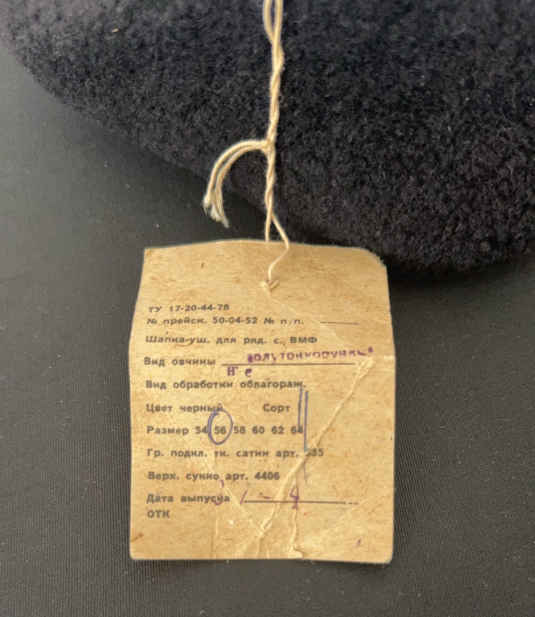 ТУ 17-20-44-78
№ прейск. 50-04-52 № п/п.
Шапка-уш. для ряд. с., ВМФ
Вид овчины
Вид обработки облагораж.
Цвет черный Сорт
Размер 54 56 58 60 62 64
Гр. подкл. тк. сатин арт.
Верх. сукно арт. 4406
Дата выпуска
ОТК